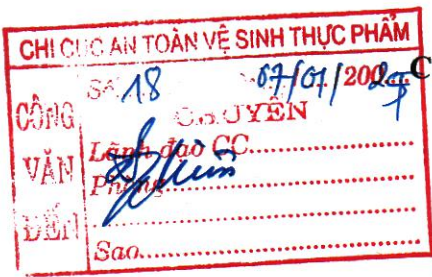 CHI CỤC AN TOÀN VỆ SINH THỰC PHẨM
CÔNG VĂN ĐẾN
Số 18 07/01/200
CHUYỂN
Lãnh đạo CC
Phòng
Sao
C